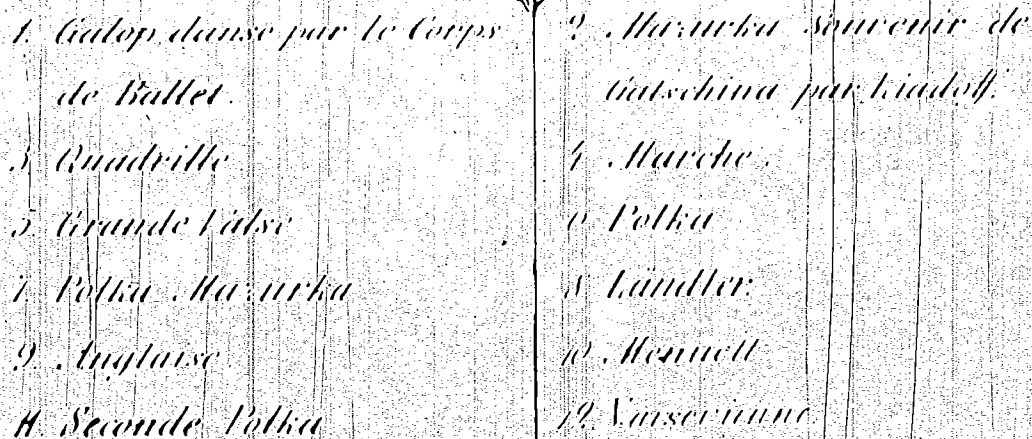 1. Galop, danse par le Corps
de Ballet.
3. Quadrille
5. Grande Valse
7. Polka Mazurka
9. Anglaise.
11. Seconde Polka
2. Mazurka Souvenir de
Gatschina par Liadoff.
4. Marche.
6. Polka
8. Ländler.
10. Menuett
12. Varsovienne